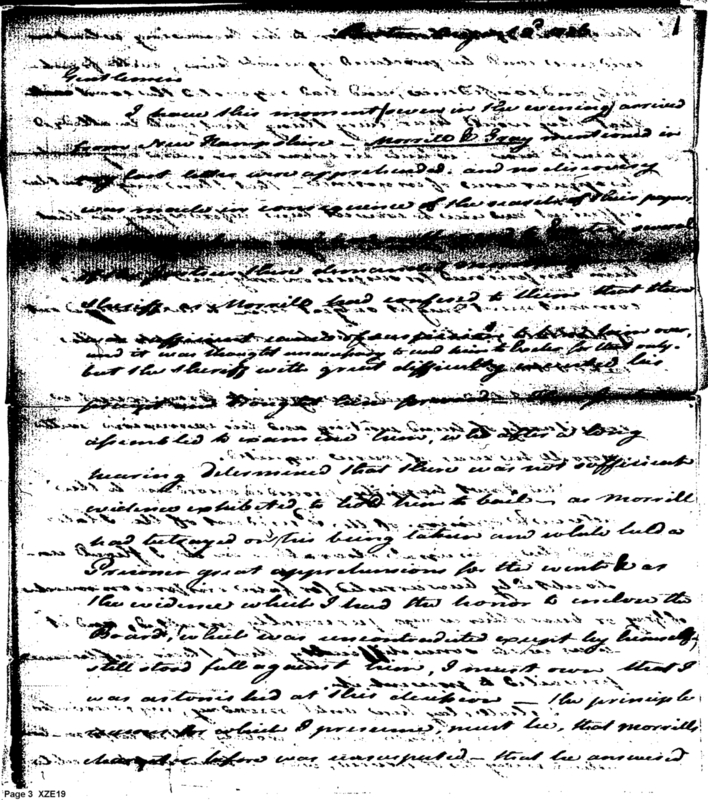 1
Gentlemen
I have this moment (seven in the evening) arrived
from New Hampshire – Morrill & Gray mentioned in
my last letter were apprehended. and no discovery
was made in consequence of the search of their papers,
of the Justices there demanded
Sheriff as Morrill had confessed to them that there
sufficient to him over,
and it was thought unnecessary to send him to for that only.
but the Sheriff with great difficulty executed his
precept and brought him forward –
assembled to examine him, who after a long
hearing determined that there was not sufficient
evidence exhibited to hold him to bail – as Morrill
had betrayed on his being taken and while held a
Prisoner great apprehensions for the event & as
the evidence which I had the honor to inclose the
Board, which was uncontradicted except by himself,
still stood full against him, I must own that I
was astonished at this decision – the principle
reason for which I presume, must be, that Morrills
before was unsuspected – that he answered
Page 3 XZE19